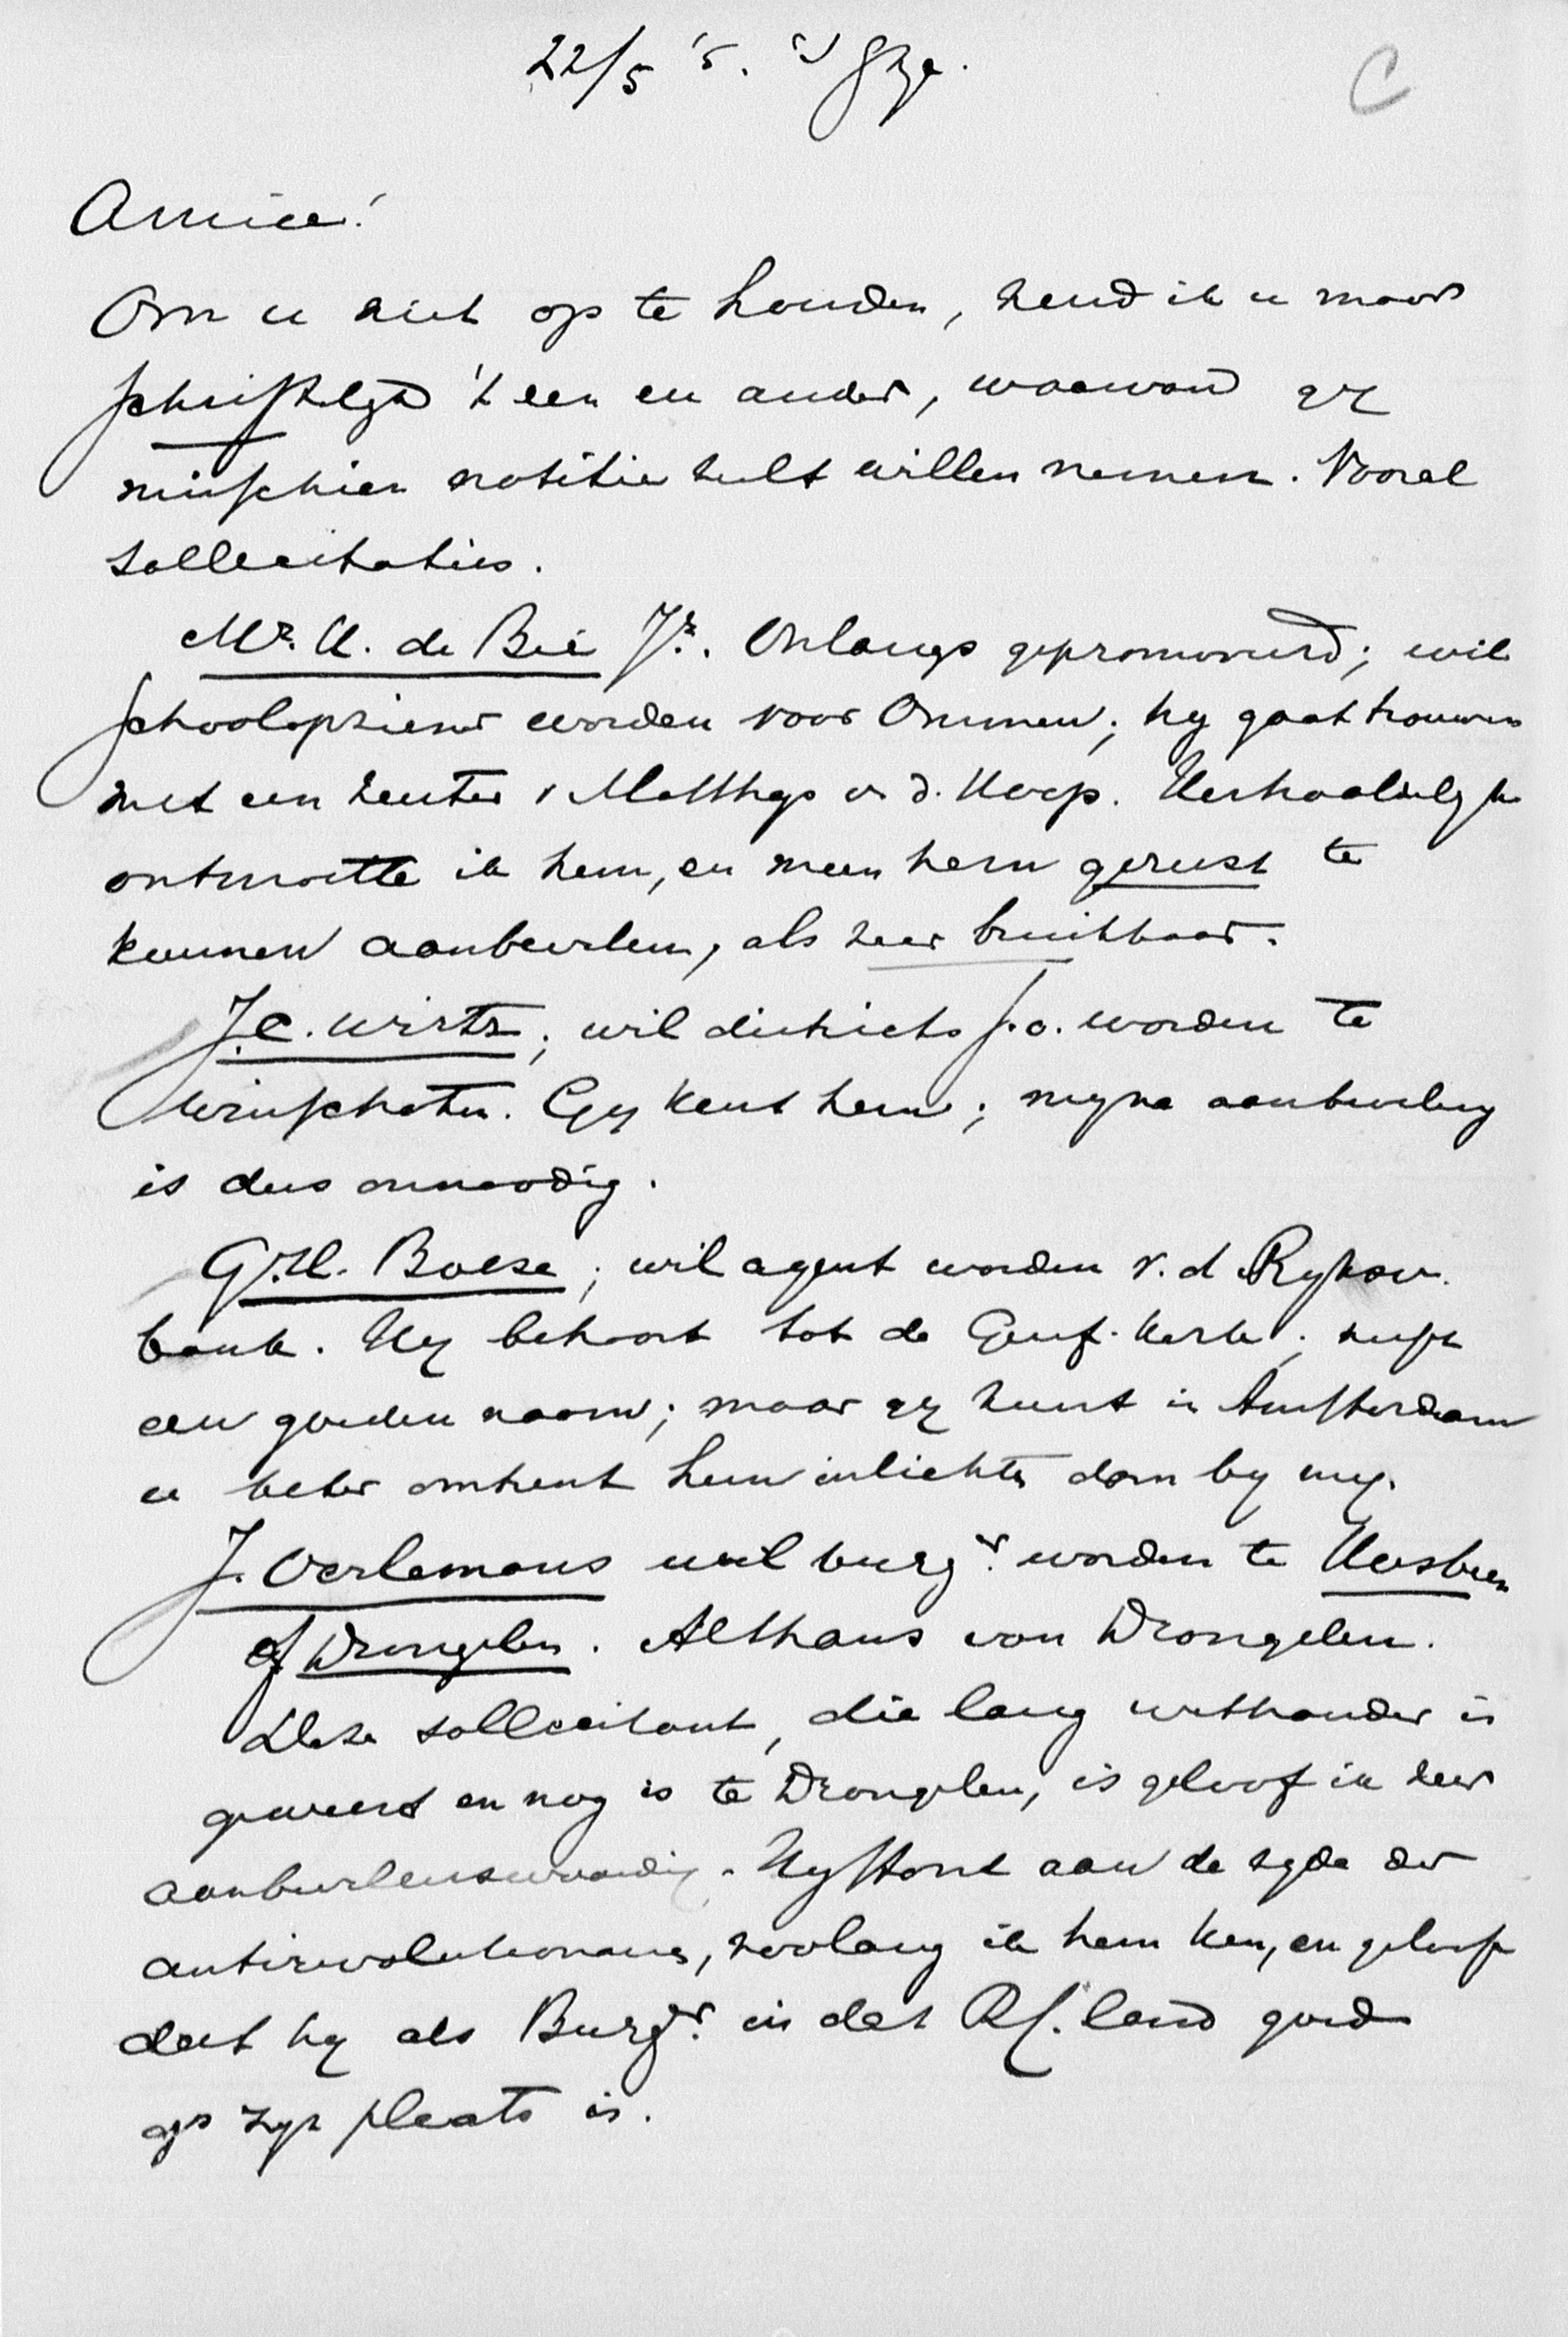 22/5 '5. 's Gge.
C
Amice!
Om u niet op te houden, zend ik u maar
schriftelijk 't een en ander, waarvan gij
misschien notitie zult willen nemen. Vooral
sollicitaties.
Mr. H. de Bie Jr. Onlangs gepromoveerd; wil
schoolopziener worden voor Ommen; hij gaat trouwen
met een zuster v Matthijs v. d. Herp. Herhaaldelijk
ontmoette ik hem, en meen hem gerust te
kunnen aanbevelen, als zeer bruikbaar.
J.C. Wirtz; wil districts s.o. worden te
Winschoten. Gij kent hem; mijne aanbeveling
is dus onnoodig.
G.H. Boese; wil agent worden v. d. Rijksv.
bank. Hij behoort tot de Geref. Kerk; heeft
een goeden naam; maar gij kunt in Amsterdam
u beter omtrent hem inlichten dan bij mij.
J. Oerlemans wil burgr. worden te Heesbeen
of Drongelen. Althans van Drongelen.
Deze sollicitant, die lang wethouder is
geweest en nog is te Drongelen, is geloof ik zeer
aanbevelenswaardig. Hij stond aan de zijde der
antirevolutionairen, zoolang ik hem ken, en geloof
dat hij als Burgr. in dat land goed
op zijn plaats is.